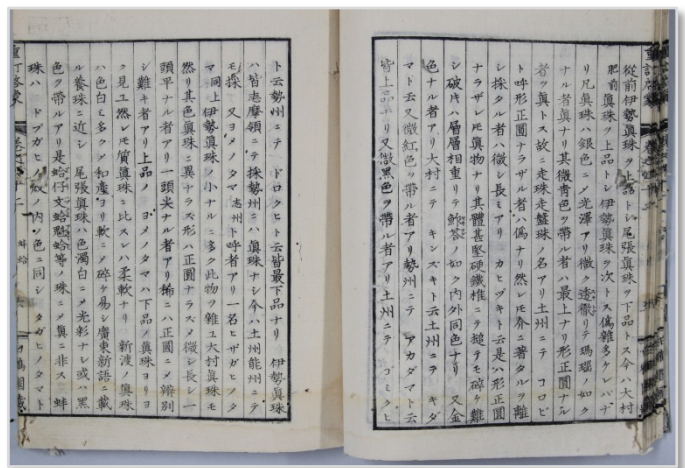 從前伊勢眞珠ヲ上品トシ尾張眞珠ヲ下品トス今ハ大村
肥前眞珠ヲ上品トシ伊勢眞珠ヲ次トス偽雜多ケレバナ
リ凡眞珠ハ銀色ニメ光澤アリ微ク透徹リテ瑪瑙ノ如ク
ナル者眞ナリ其微青色ヲ帶ル者ハ最上ナリ形正圓ナル
者ヲ眞トス故ニ走珠走盤珠ノ名アリ土州ニテ コロビ
ト呼形正圓ナラザル者ハ偽ナリ然レ𪜈介ニ著タルヲ離
シ採タル者ハ微シ長ミアリ カヒヅキト云是ハ形正圓
ナラザレ𪜈眞物ナリ其體甚堅硬鐵椎ニテ搥テモ碎ケ難
シ破レハ層層相重リテ鮓荅ノ如ク内外同色ナリ 又金
色ナル者アリ大村ニテ キンズキト云土州ニテ キダ
マト云又微紅色ヲ帶ル者アリ勢州ニテ アカダマト云
皆上品ナリ又微黒色ヲ帶ル者アリ土州ニテ ゴミクヒ
ト云勢州ニテ ドロクヒト云皆最下品ナリ 伊勢眞珠
ハ皆志摩領ニテ採勢州ニハ眞珠ナシ今ハ土州能州ニテ
モ採 又ヨメノタマ志州ト呼者アリ一名ヒザガヒノタ
マ同上伊勢眞珠ノ小ナルニ多ク此物ヲ雜ユ大村眞珠モ
然リ其色眞珠ニ異ナラズ形ハ正圓ナラズメ微シ長シ一
頭平ナル者アリ一頭尖ナル者アリ稀ニハ正圓ニメ辨別
シ難キ者アリ上品ノ ヨメノタマハ下品ノ眞珠ヨリヨ
ク見ユ然レ𪜈質眞珠ニ比スレハ柔軟ナリ 新渡ノ眞珠
ハ色白ミ多クメ和産ヨリ軟ニメ碎ケ易シ廣東新語ニ載
ル養珠ニ近シ 尾張眞珠ハ色濁白ニメ光彩ナシ或ハ黒
色ヲ帶ルアリ是蛤仔文蛤䖳蛤等ノ珠ニメ眞ニ非ス 蚌
珠ハ ドブガヒノ殻ノ内ノ色ニ同シ タガヒノタマト